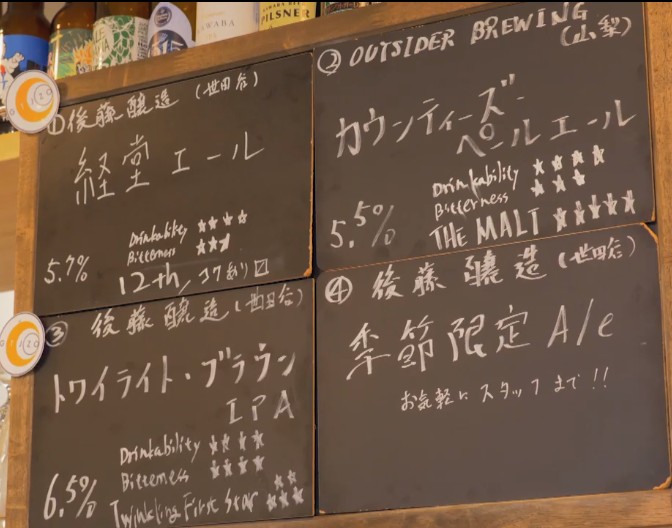 PILSNER
① 後藤醸造 (世田谷)
経堂エール
5.7%
Drinkability ★★★★
Bitterness ★★★
12th
② OUTSIDER BREWING
(山梨)
カウンティーズ
ペールエール
5.5%
Drinkability ★★★★
Bitterness ★★★
THE MALT ★★★★★
③ 後藤醸造 (世田谷)
トワイライト・ブラウン
IPA
6.5%
Drinkability ★★★★
Bitterness ★★★★
Twinkling First Star ★★★★★
④ 後藤醸造 (世田谷)
季節限定 Ale
お気軽にスタッフまで!!